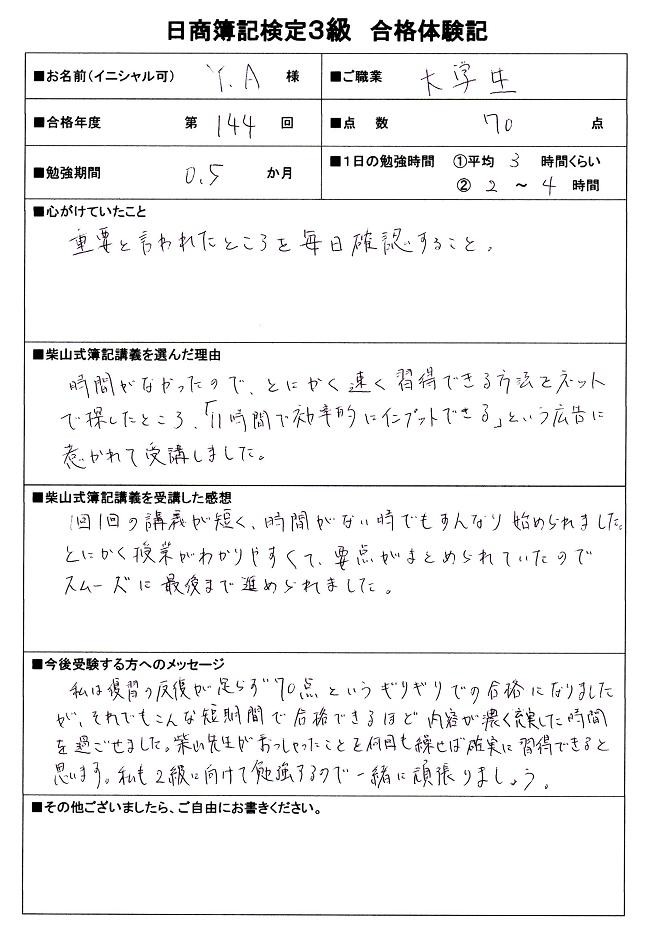 日商簿記検定3級 合格体験記
■お名前(イニシャル可) Y.A 様
■ご職業 大学生
■合格年度 第 144 回
■点 数 70 点
■勉強期間 0.5 か月
■1日の勉強時間 ①平均 3 時間くらい
② 2 ～ 4 時間
■心がけていたこと
重要と言われたところを毎日確認すること。
■柴山式簿記講義を選んだ理由
時間がなかったので、とにかく速く習得できる方法をネット
で探したところ、「11時間で効率的にインプットできる」という広告に
惹かれて受講しました。
■柴山式簿記講義を受講した感想
1回1回の講義が短く、時間がない時でもすんなり始められました。
とにかく授業がわかりやすくて、要点がまとめられていたので
スムーズに最後まで進められました。
■今後受験する方へのメッセージ
私は復習の反復が足らず70点というギリギリでの合格になりました
が、それでもこんな短期間で合格できるほど内容が濃く充実した時間
を過ごせました。柴山先生がおっしゃったことを何回も繰せば確実に習得できると
思います。私も2級に向けて勉強するので一緒に頑張りましょう。
■その他ございましたら、ご自由にお書きください。